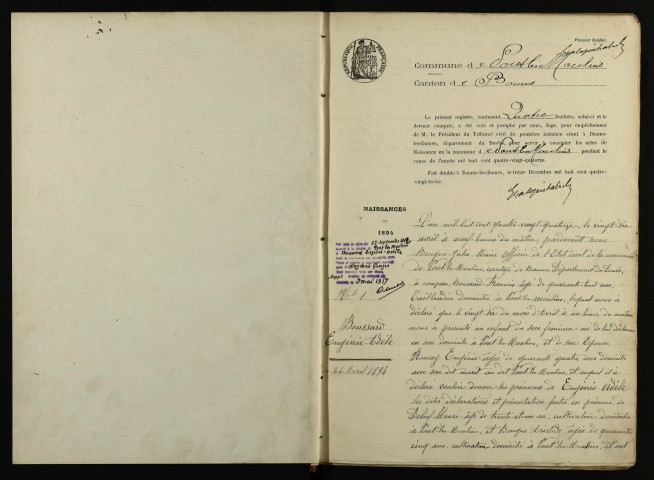 Premier feuillet.
RÉPUBLIQUE FRANÇAISE
Commune de Pont les Moulins
Canton de Baume
Le présent registre, contenant Quatre feuillets, celui-ci et le
dernier compris, a été coté et paraphé par nous, Juge, pour empêchement
de M. le Président du Tribunal civil de première instance séant à Baume-
les-Dames, département du Doubs, pour servir à constater les actes de
Naissance en la commune de Pont les Moulins pendant le
cours de l'année mil huit cent quatre-vingt-quatorze.
Fait double à Baume-les-Dames, le treize Décembre mil huit cent quatre-
vingt-treize.
NAISSANCES
1894
N° 1
Boussard
Eugénie Adèle
26 Avril 1894
L'an mil huit cent quatre vingt quatorze, le vingt six
avril à neuf heures du matin, pardevant nous
Maire officier de l'Etat civil de la commune
de Pont les Moulins, canton de Baume Département du Doubs,
à comparu Boussard François âgé de quarante huit ans,
domicilié à Pont les moulins, lequel nous a
déclaré que le vingt six du mois d'Avril à un heure du matin
nous a présenté un enfant du sexe féminin né de lui déclarant
en son domicile à Pont les Moulins, et de son Epouse
Eugénie âgée de quarante quatre ans domiciliée
avec son dit mari au dit Pont les Moulins, et auquel il a
déclaré vouloir donner les prénoms de Eugénie Adèle
les dites déclarations et présentation faites en présence de
Henri âgé de trente un an, cultivateur domicilié
à Pont les Moulins, et Aristide âgé de quarante
cinq ans, cultivateur domicilié à Pont les Moulins, et ont